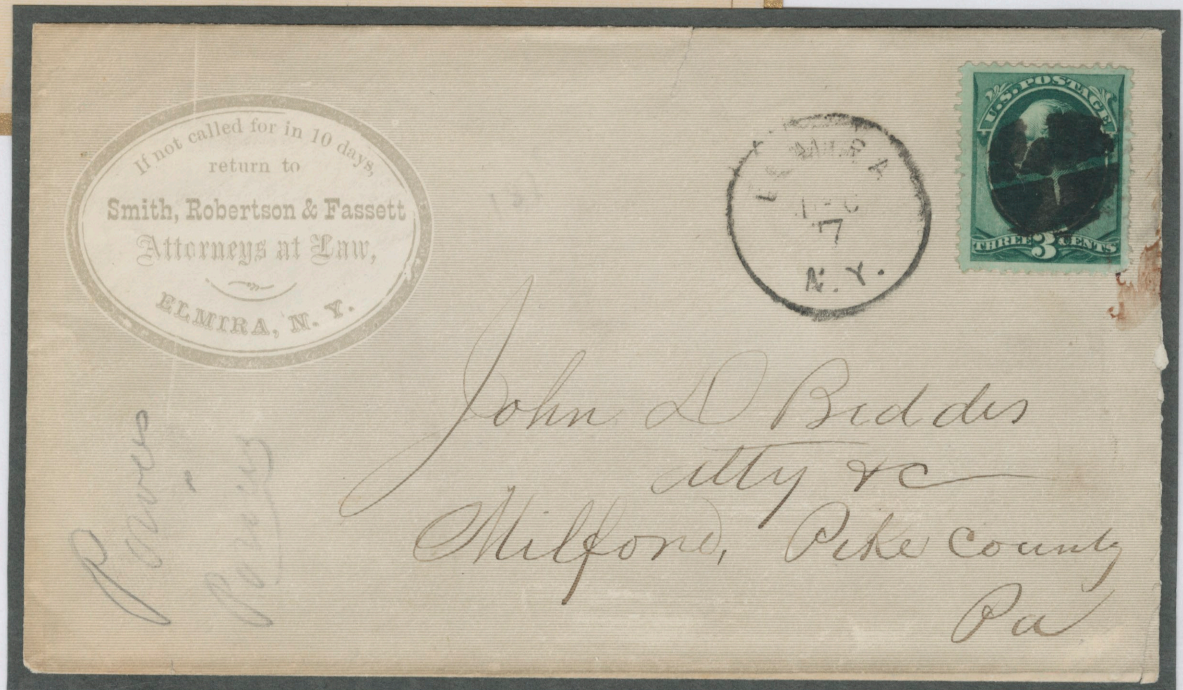 If not called for in 10 days,
return to
Smith, Robertson & Fassett
Attorneys at Law,
ELMIRA, N. Y.
ELMIRA
DEC
7
N. Y.
U.S. POSTAGE
THREE 3 CENTS
John D Biddis
atty &c
Milford, Pike County
Pa